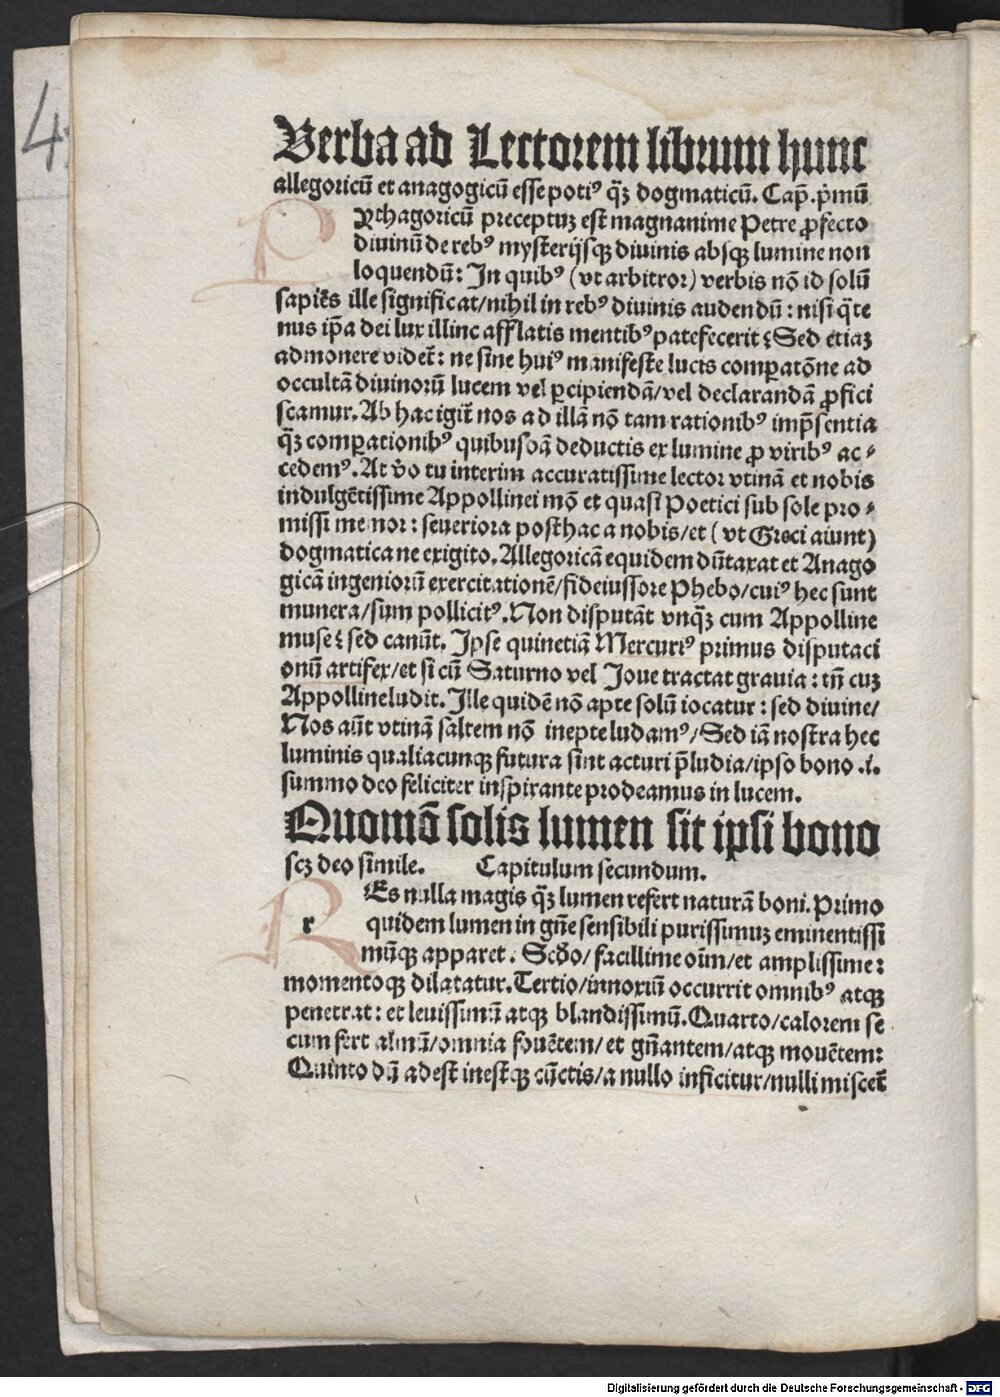 4.
Verba ad Lectorem librum hunc
allegoricū et anagogicū esse potiꝰ q̃ꝫ dogmaticū. Cap̃. p̃mū
P
Ythagoricū preceptuꝫ est magnanime Petre ꝓfecto
diuinū de rebꝰ mysterijsqꝫ diuinis absqꝫ lumine non
loquendū: In quibꝰ (vt arbitror) verbis nō id solū
sapiēs ille significat/nihil in rebꝰ diuinis audendū: nisi q̃te
nus ip̃a dei lux illinc afflatis mentibꝰ patefecerit: Sed etiaꝫ
admonere videt̃: ne sine huiꝰ manifeste lucis comꝑatōne ad
occultā diuinorū lucem vel ꝑcipiendā/vel declarandā ꝓfici
scamur. Ab hac igit̃ nos ad illā nō tam rationibꝰ imp̃sentia
q̃ꝫ comꝑationibꝰ quibusdā deductis ex lumine ꝓ viribꝰ ac⸗
cedemꝰ. At v̄o tu interim accuratissime lector vtinā et nobis
indulgētissime Appollinei mō et quasi Poetici sub sole pro⸗
missi memor: seueriora posthac a nobis/et (vt Greci aiunt)
dogmatica ne exigito. Allegoricā equidem dūtaxat et Anago
gicā ingeniorū exercitationē/fideiussore Phebo/cuiꝰ hec sunt
munera/sum pollicitꝰ. Non disputāt vnq̃ꝫ cum Appolline
muse: sed canūt. Ipse quinetiā Mercuriꝰ primus disputaci
onū artifex/et si cū Saturno vel Ioue tractat grauia: tn̄ cuꝫ
Appolline ludit. Ille quidē nō apte solū iocatur: sed diuine/
Nos aūt vtinā saltem nō inepte ludamꝰ/Sed iā nostra hec
luminis qualiacunqꝫ futura sint acturi p̃ludia/ipso bono .i.
summo deo feliciter inspirante prodeamus in lucem.
Quomō solis lumen sit ipsi bono
scꝫ deo simile. Capitulum secundum.
R
r
Es nulla magis q̃ꝫ lumen refert naturā boni. Primo
quidem lumen in gn̄e sensibili purissimuꝫ eminentissi
mūqꝫ apparet. Scd̄o/facillime oīm/et amplissime:
momentoqꝫ dilatatur. Tertio/innoxiū occurrit omnibꝰ atqꝫ
penetrat: et leuissimū atqꝫ blandissimū. Quarto/calorem se
cum fert almū/omnia fouētem/et gn̄antem/atqꝫ mouētem:
Quinto dū adest inestqꝫ cūctis/a nullo inficitur/nulli miscet̃
Digitalisierung gefördert durch die Deutsche Forschungsgemeinschaft - DFG